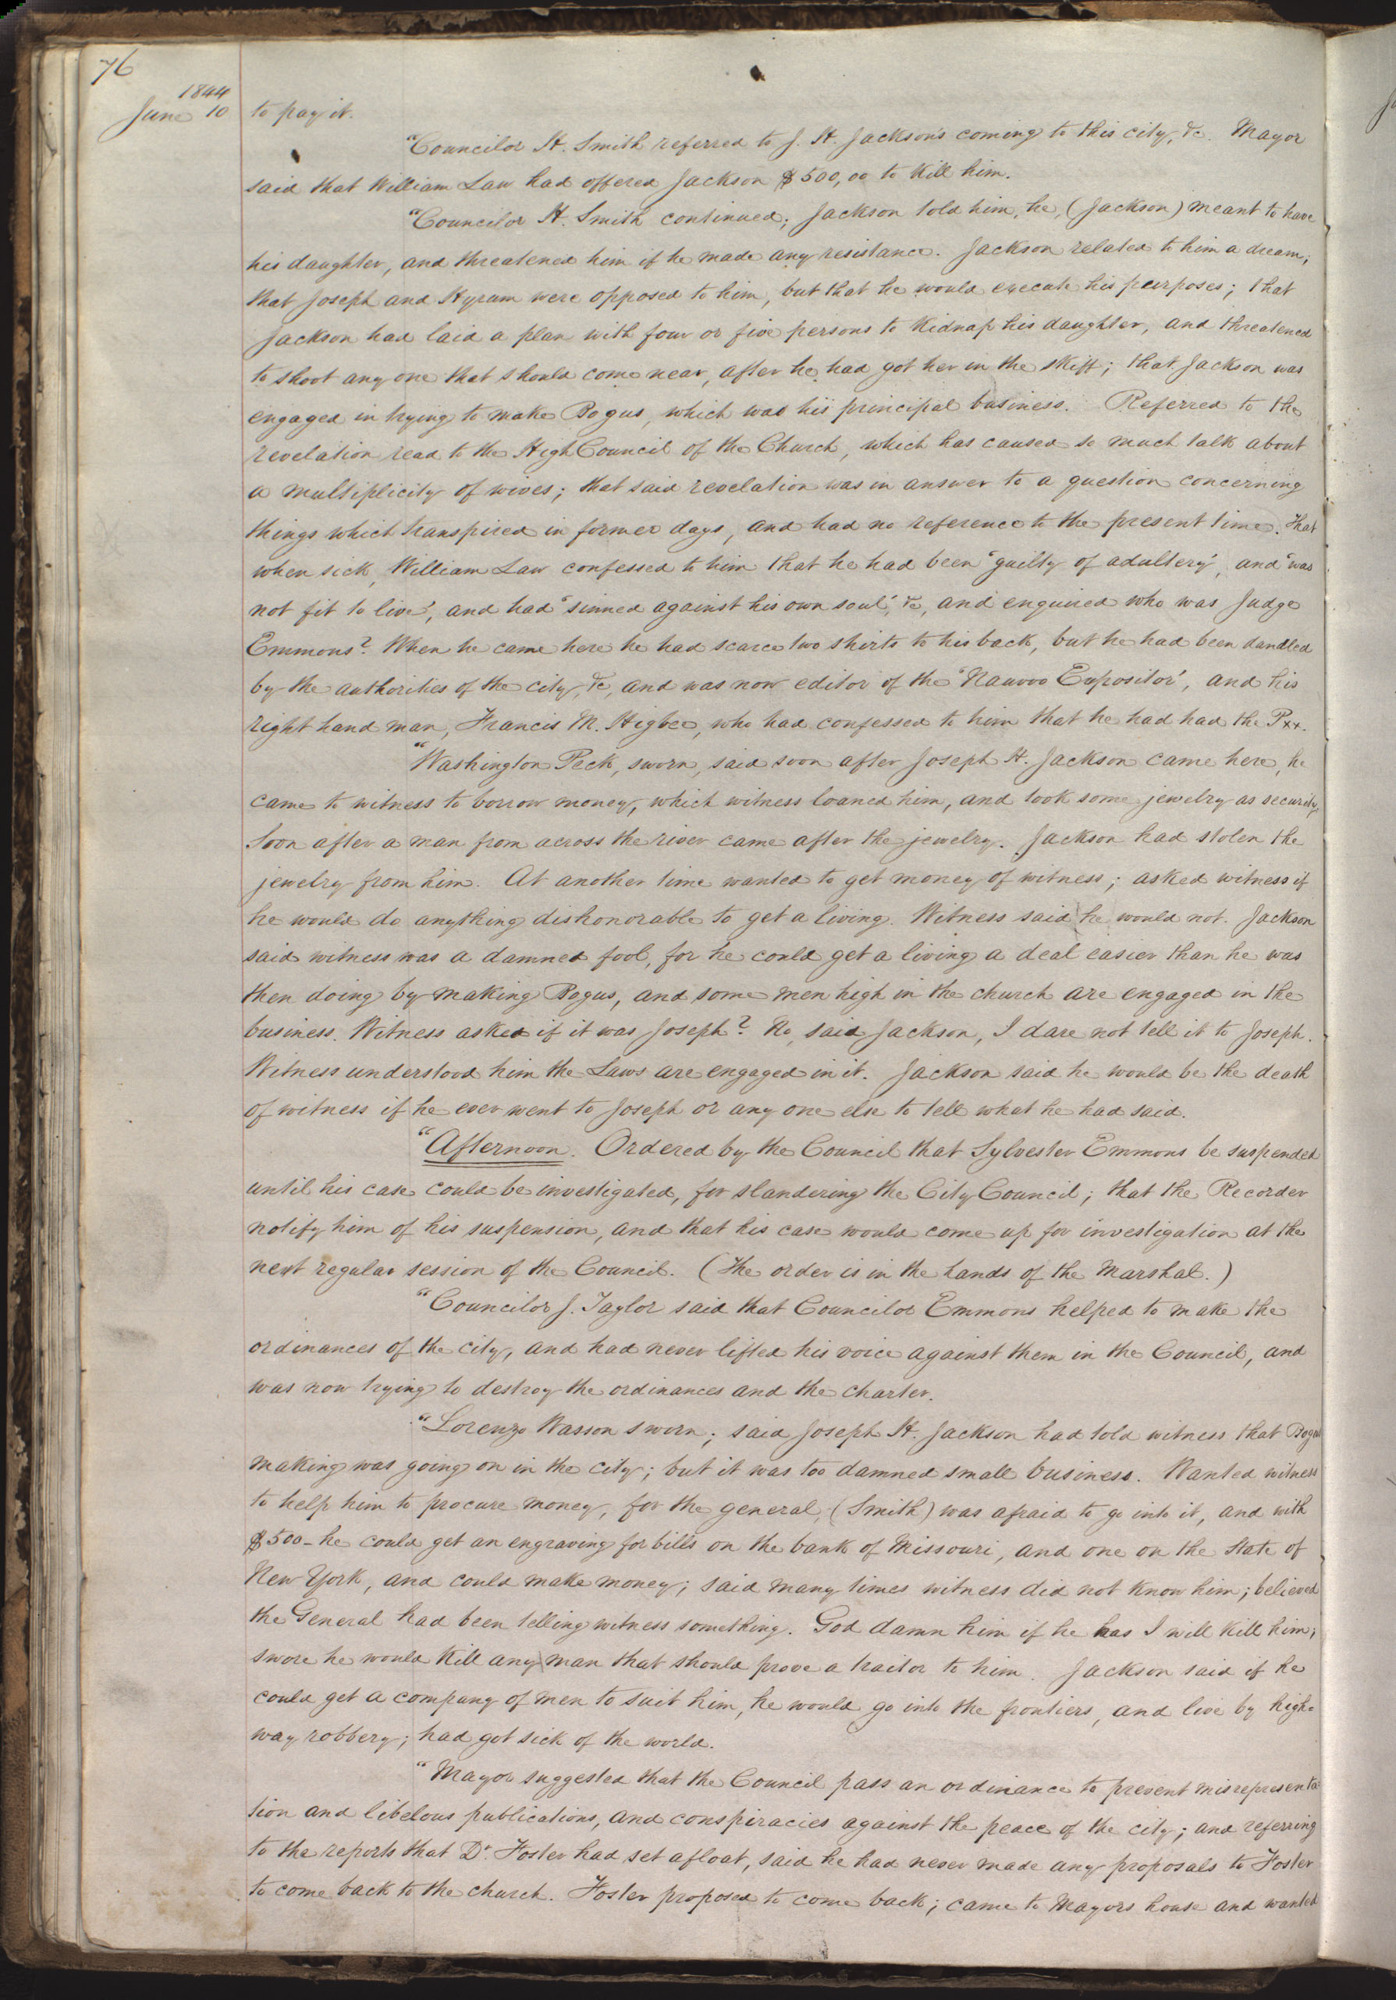 76
1844
June 10 to pay it.
"Councilor H. Smith referred to J. H. Jackson's coming to this city, &c. Mayor
said that William Law had offered Jackson $500,00 to Kill him.
"Councilor H. Smith continued; Jackson told him, he, (Jackson) meant to have
his daughter, and threatened him if he made any resistance. Jackson related to him a dream;
that Joseph and Hyrum were opposed to him, but that he would execute his purposes; that
Jackson had laid a plan with four or five persons to Kidnap his daughter, and threatened
to shoot any one that should come near, after he had got her in the skiff; that Jackson was
engaged in trying to make Bogus, which was his principal business. Referred to the
revelation read to the High Council of the Church, which has caused so much talk about
a multiplicity of wives; that said revelation was in answer to a question concerning
things which transpired in former days, and had no reference to the present time. That
when sick, William Law confessed to him that he had been "guilty of adultery', and "was
not fit to live', and had "sinned against his own soul', &c, and enquired who was Judge
Emmons? When he came here he had scarce two shirts to his back, but he had been dandled
by the authorities of the city, &c, and was now editor of the "Nauvoo Expositor', and his
right hand man, Francis M. Higbee, who had confessed to him that he had had the Pxx.
"Washington Peck, sworn, said soon after Joseph H. Jackson came here, he
came to witness to borrow money, which witness loaned him, and took some jewelry as security.
Soon after a man from across the river came after the jewelry. Jackson had stolen the
jewelry from him. At another time wanted to get money of witness; asked witness if
he would do anything dishonorable to get a living. Witness said he would not. Jackson
said witness was a damned fool, for he could get a living a deal easier than he was
then doing by making Bogus, and some men high in the church are engaged in the
business. Witness asked if it was Joseph? No, said Jackson, I dare not tell it to Joseph.
Witness understood him the Laws are engaged in it. Jackson said he would be the death
of witness if he ever went to Joseph or any one else to tell what he had said.
"Afternoon. Ordered by the Council that Sylvester Emmons be suspended
until his case could be investigated, for slandering the City Council; that the Recorder
notify him of his suspension, and that his case would come up for investigation at the
next regular session of the Council. (The order is in the hands of the Marshal.)
"Councilor J. Taylor said that Councilor Emmons helped to make the
ordinances of the city, and had never lifted his voice against them in the Council, and
was now trying to destroy the ordinances and the charter.
"Lorenzo Wasson sworn; said Joseph H. Jackson had told witness that Bogus
making was going on in the city; but it was too damned small business. Wanted witness
to help him to procure money, for the general, (Smith) was afraid to go into it, and with
$500- he could get an engraving for bills on the bank of Missouri, and one on the State of
New York, and could make money; said many times witness did not know him; believed
the General had been telling witness something. God damn him if he has I will kill him;
swore he would kill any man that should prove a traitor to him. Jackson said if he
could get a company of men to suit him, he would go into the frontiers, and live by high=
way robbery; had got sick of the world.
"Mayor suggested that the Council pass an ordinance to prevent misrepresenta=
tion and libelous publications, and conspiracies against the peace of the city; and referring
to the reports that Dr. Foster had set afloat, said he had never made any proposals to Foster
to come back to the church. Foster proposed to come back; came to Mayors house and wanted